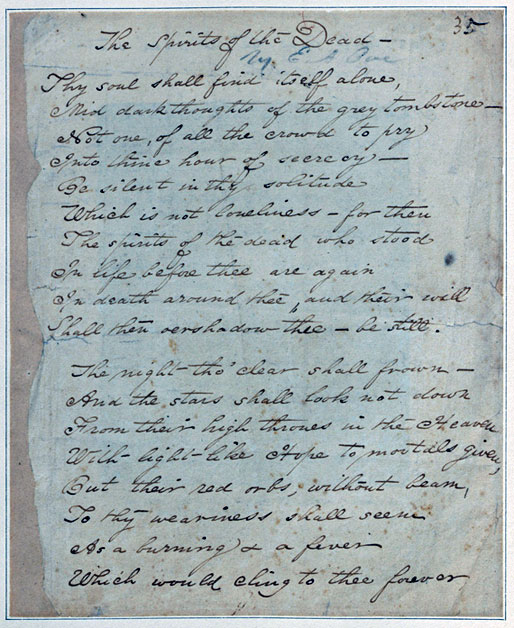 35
The Spirits of the Dead —
by E A Poe
Thy soul shall find itself alone,
Mid dark thoughts of the grey tombstone —
Not one, of all the crowd to pry
Into thine hour of secrecy —
Be silent in thy solitude
Which is not loneliness — for then
The spirits of the dead who stood
In life before thee are again
In death around thee, and their will
Shall then overshadow thee — be still.
The night tho' clear shall frown —
And the stars shall look not down
From their high thrones in the Heaven
With light like Hope to mortals given,
But their red orbs, without beam,
To thy weariness shall seem
As a burning & a fever
Which would cling to thee forever